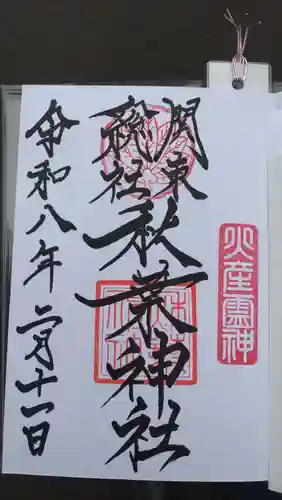 火産霊神
関東
総社
秋葉神社
令和八年二月十一日